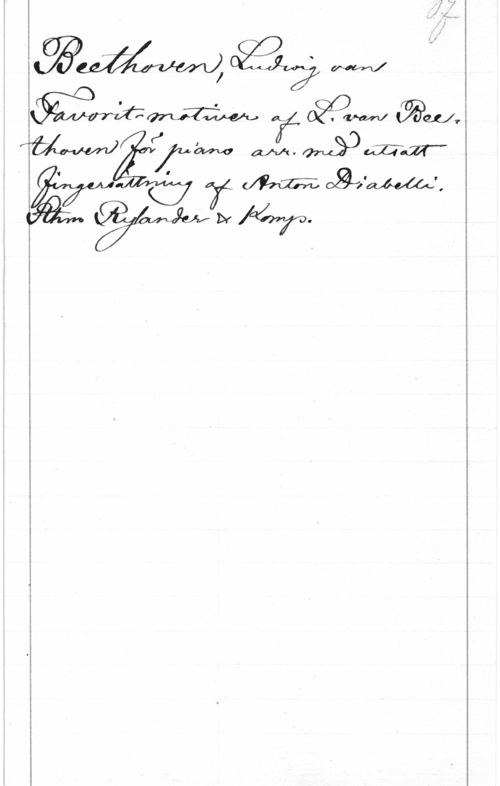 Beethoven, Ludwig van
Favorit-motiver af L. van Bee-
thoven för piano arr. med utsatt
fingersättning af Anton Diabelli.
Sthm Rylander & Komp.